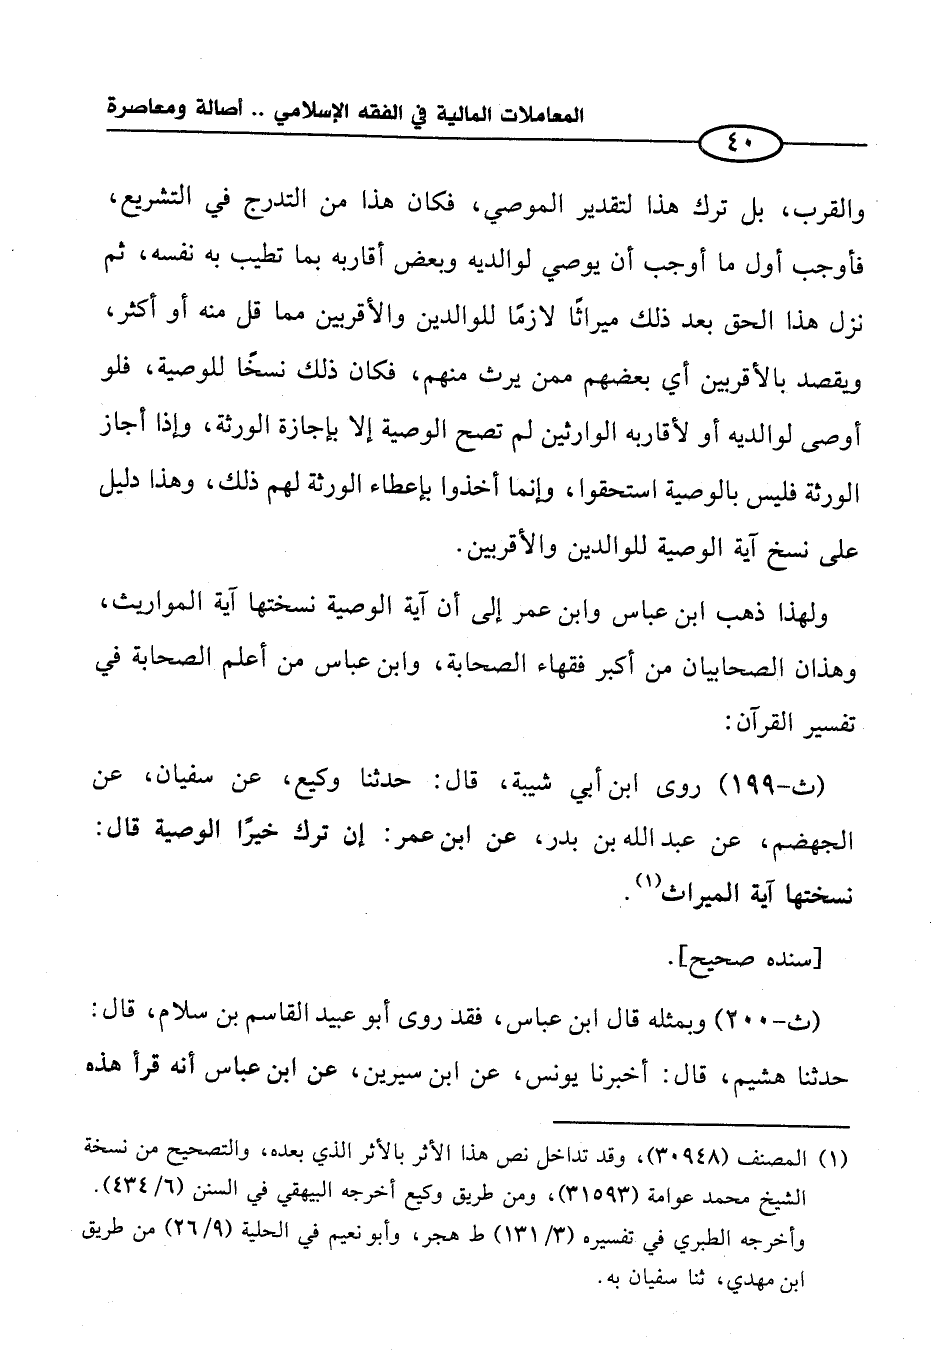 المعاملات المالية في الفقه الإسلامي .. أصالة ومعاصرة
٤٠
والقرب، بل ترك هذا لتقدير الموصي، فكان هذا من التدرج في التشريع،
فأوجب أول ما أوجب أن يوصي لوالديه وبعض أقاربه بما تطيب به نفسه، ثم
نزل هذا الحق بعد ذلك ميراثًا لازمًا للوالدين والأقربين مما قل منه أو أكثر،
ويقصد بالأقربين أي بعضهم ممن يرث منهم، فكان ذلك نسخًا للوصية، فلو
أوصى لوالديه أو لأقاربه الوارثين لم تصح الوصية إلا بإجازة الورثة، وإذا أجاز
الورثة فليس بالوصية استحقوا، وإنما أخذوا بإعطاء الورثة لهم ذلك، وهذا دليل
على نسخ آية الوصية للوالدين والأقربين.
ولهذا ذهب ابن عباس وابن عمر إلى أن آية الوصية نسختها آية المواريث،
وهذان الصحابيان من أكبر فقهاء الصحابة، وابن عباس من أعلم الصحابة في
تفسير القرآن:
(ث-١٩٩) روى ابن أبي شيبة، قال: حدثنا وكيع، عن سفيان، عن
الجهضم، عن عبد الله بن بدر، عن ابن عمر: إن ترك خيرًا الوصية قال:
نسختها آية الميراث(١).
[سنده صحيح].
(ث-٢٠٠) وبمثله قال ابن عباس، فقد روى أبو عبيد القاسم بن سلام، قال:
حدثنا هشيم، قال: أخبرنا يونس، عن ابن سيرين، عن ابن عباس أنه قرأ هذه
(١) المصنف (٣٠٩٤٨)، وقد تداخل نص هذا الأثر بالأثر الذي بعده، والتصحيح من نسخة
الشيخ محمد عوامة (٣١٥٩٣)، ومن طريق وكيع أخرجه البيهقي في السنن (٦/ ٤٣٤).
وأخرجه الطبري في تفسيره (٣/ ١٣١) ط هجر، وأبو نعيم في الحلية (٩/ ٢٦) من طريق
ابن مهدي، ثنا سفيان به.